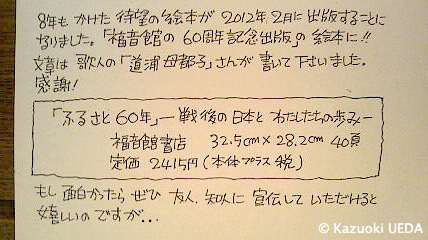 8年もかけた待望の絵本が2012年2月に出版することに
なりました。「福音館の60周年記念出版」の絵本に!!
文章は歌人の「道浦母都子」さんが書いて下さいました。
感謝!
「ふるさと60年」―戦後の日本とわたしたちの歩み―
福音館書店 32.5cm×28.2cm 40頁
定価 2415円(本体プラス税)
もし面白かったらぜひ友人、知人に宣伝していただけると
嬉しいのですが...
© Kazuoki UEDA